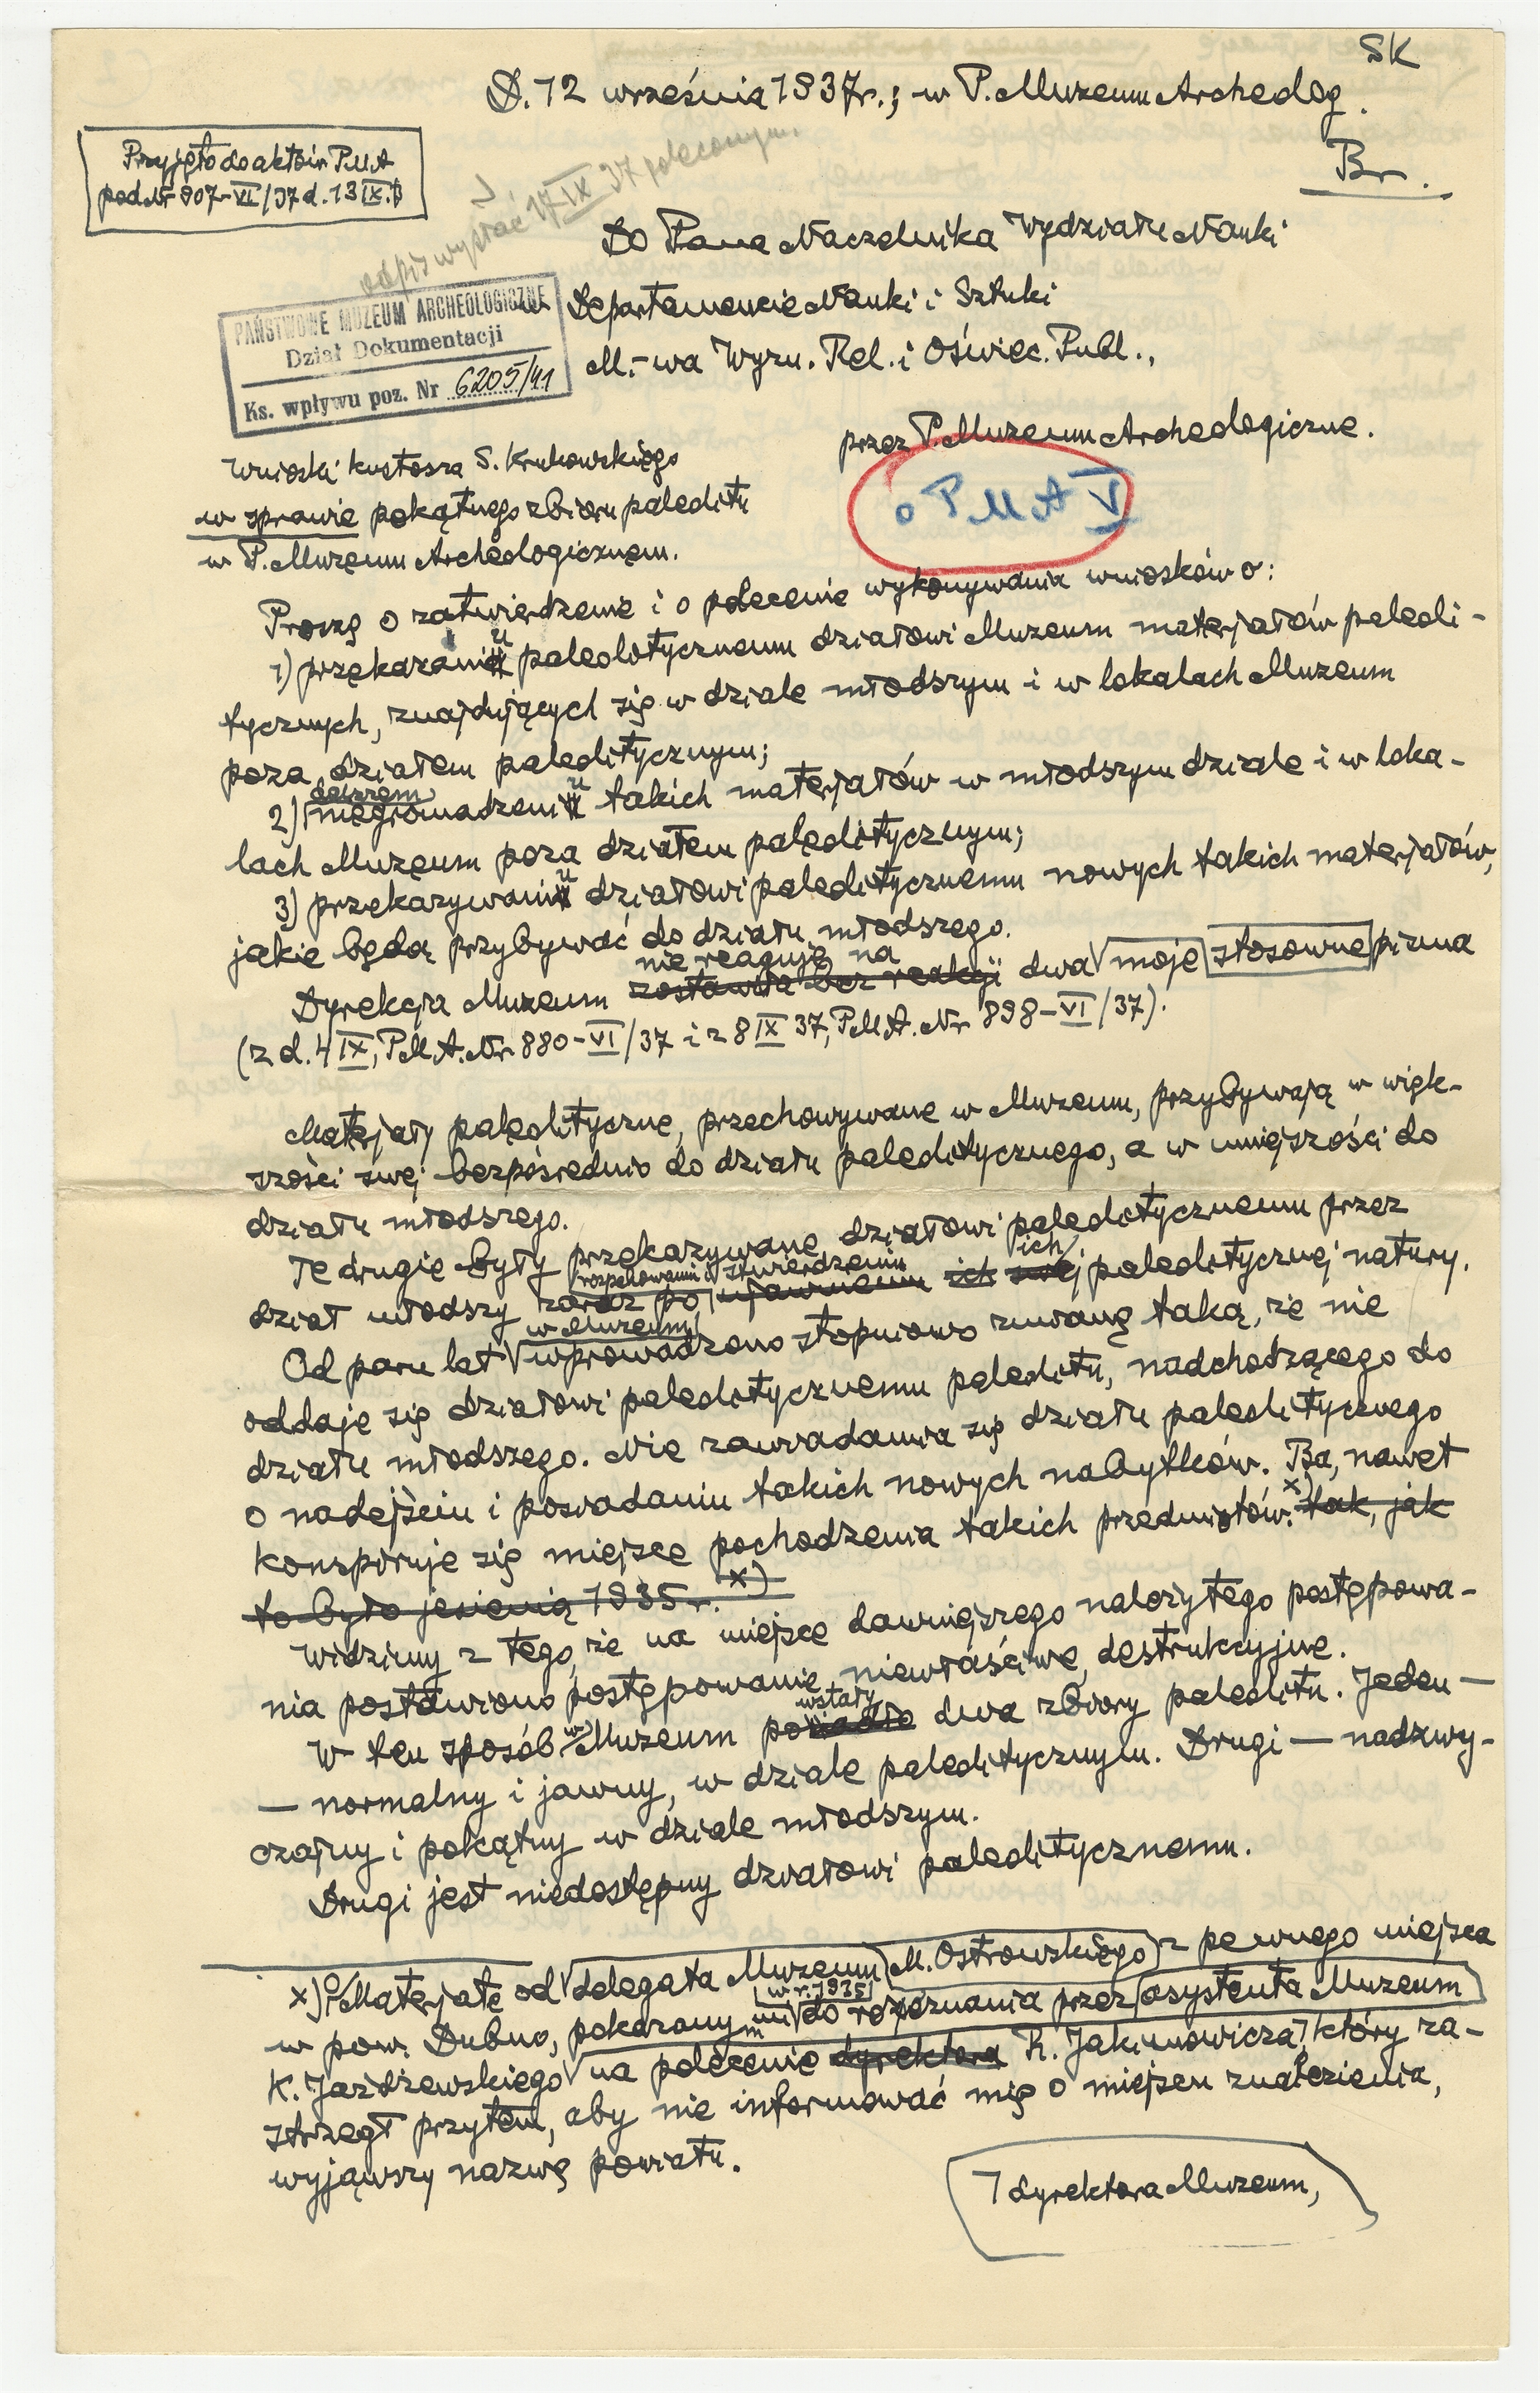 SK
D. 12 września 1937r.; w P. Muzeum Archeolog.
Br.
Przyjęto do aktów PMA
pod Nr 907-VI/37 d. 13 IX. B
odpis wysłać 17 IX 37 poleconym.
Do Pana Naczelnika Wydziału Nauki
w Departamencie Nauki i Sztuki
M.-wa Wyzn. Rel. i Oświec. Publ.,
PAŃSTWOWE MUZEUM ARCHEOLOGICZNE
Dział Dokumentacji
Ks. wpływu poz. Nr 6205/41
przez P. Muzeum Archeologiczne.
o PMA V
Wnioski kustosza S. Krukowskiego
w sprawie pokątnego zbioru paleolitu
w P. Muzeum Archeologicznem.
Proszę o zatwierdzenie i o polecenie wykonywania wniosków o:
1) przekazaniu paleolitycznemu działowi Muzeum materjałów paleoli-
tycznych, znajdujących się w dziale młodszym i w lokalach Muzeum
poza działem paleolitycznym;
2) dalszem niegromadzeniu takich materjałów w młodszym dziale i w loka-
lach Muzeum poza działem paleolitycznym;
3) przekazywaniu działowi paleolitycznemu nowych takich materjałów,
jakie będą przybywać do działu młodszego.
nie reaguje na
Dyrekcja Muzeum zostawiła bez reakcji dwa moje stosowne pisma
(z d. 4 IX, P.M.A. Nr. 880-VI/37 i z 8 IX 37, P.M.A. Nr 898-VI/37).
Materjały paleolityczne, przechowywane w Muzeum, przybywają w więk-
szości swej bezpośrednio do działu paleolitycznego, a w mniejszości do
działu młodszego.
Te drugie były przekazywane działowi paleolitycznemu przez
rozpakowaniu i stwierdzeniu ich
dział młodszy zaraz po ujawnieniu ich swej paleolitycznej natury.
w Muzeum
Od paru lat wprowadzono stopniowo zmianę taką, że nie
oddaje się działowi paleolitycznemu paleolitu, nadchodzącego do
działu młodszego. Nie zawiadamia się działu paleolitycznego
o nadejściu i posiadaniu takich nowych nabytków. Ba, nawet
konspiruje się miejsce pochodzenia takich przedmiotów. x) tak, jak
to było jesienią 1935 r. x)
Widzimy z tego, że na miejsce dawniejszego należytego postępowa-
nia postawiono postępowanie niewłaściwe, destrukcyjne.
wstały
W ten sposób w Muzeum posiadło dwa zbiory paleolitu. Jeden —
— normalny i jawny, w dziale paleolitycznym. Drugi — nadzwy-
czajny i pokątny w dziale młodszym.
Drugi jest niedostępny działowi paleolitycznemu.
x) O Materjale od delegata Muzeum M. Ostrowskiego z pewnego miejsca
w r. 1935
w pow. Dubno, pokazanym mi do rozpoznania przez asystenta Muzeum
K. Jażdżewskiego na polecenie dyrektora R. Jakimowicza, który za-
strzegł przytem, aby nie informować mię o miejscu znalezienia,
wyjąwszy nazwę powiatu.
dyrektora Muzeum,